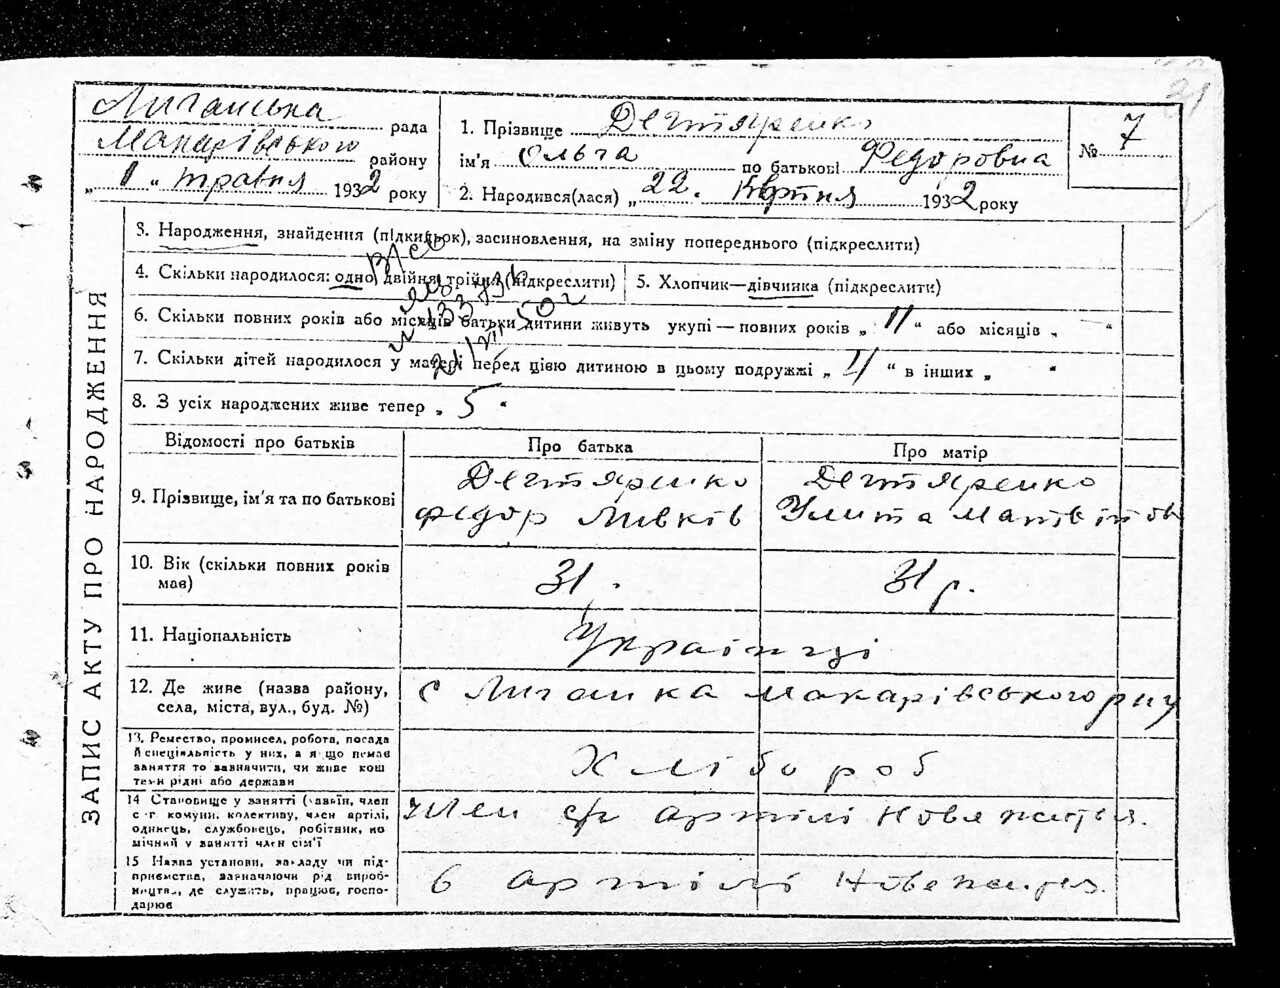 Личанська рада
Макарівського району
„ 1 “ травня 1932 року
1. Прізвище Дегтяренко
ім'я Ольга по батькові Федоровна
2. Народився(лася) „ 22. Квітня 1932 року
№ 7
21
ЗАПИС АКТУ ПРО НАРОДЖЕННЯ
3. Народження, знайдення (підкидьок), засиновлення, на зміну попереднього (підкреслити)
4. Скільки народилося: одно, двійня, трійня (підкреслити)
5. Хлопчик—дівчинка (підкреслити)
6. Скільки повних років або місяців батьки дитини живуть укупі — повних років „ 11 “ або місяців „ “
7. Скільки дітей народилося у матері перед цією дитиною в цьому подружжі „ 4 “ в інших „ “
8. З усіх народжених живе тепер „ 5 “
Відомості про батьків
Про батька
Про матір
9. Прізвище, ім'я та по батькові
Дегтяренко
Федор
Дегтяренко
Улита
10. Вік (скільки повних років мав)
31.
31 р.
11. Національність
Українці
12. Де живе (назва району,
села, міста, вул., буд. №)
с Личанка Макарівського рну
13. Ремество, промисел, робота, посада
й спеціяльність у них, а якщо немає
заняття то зазначити, чи живе кош
тами рідні або держави
Хлібороб
14 Становище у занятті (хазяїн, член
с-г комуни, колективу, член артілі,
одинець, службовець, робітник, по
мічний у занятті член сім'ї
член с/г артілі Нове життя.
15 Назва установи, закладу чи під-
приємства, зазначаючи рід вироб-
ництва, де служить, працює, госпо-
дарює
в артілі Нове життя.